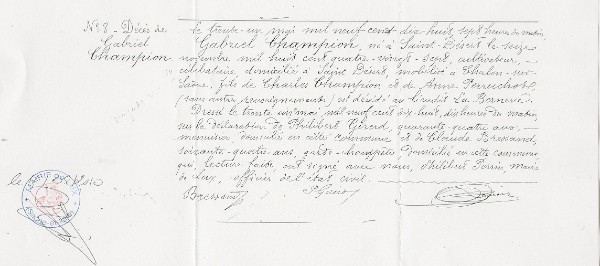 N° 8 - Décès de
Gabriel
Champion
Le trente un mai mil neuf cent dix huit, sept heures du matin,
Gabriel Champion, né à Saint-Désert le seize
novembre mil huit cent quatre-vingt-sept, cultivateur,
célibataire domicilié à Saint Désert, mobilisé à Chalon-sur-
Saône, fils de Charles Champion et de Anne Perruchot,
(sans autre renseignements) est décédé au lieudit La
Dressé le trente un mai, mil neuf cent dix-huit, dix heures du matin,
sur la déclaration de Philibert Girard, quarante quatre ans,
menuisier domicilié en cette commune et de Claude Bressand,
soixante-quatre ans, garde-champêtre domicilié en cette commune,
qui, lecture faite ont signé avec nous, Philibert Perrin, maire
de Lux, officier de l'état civil.
Bressand